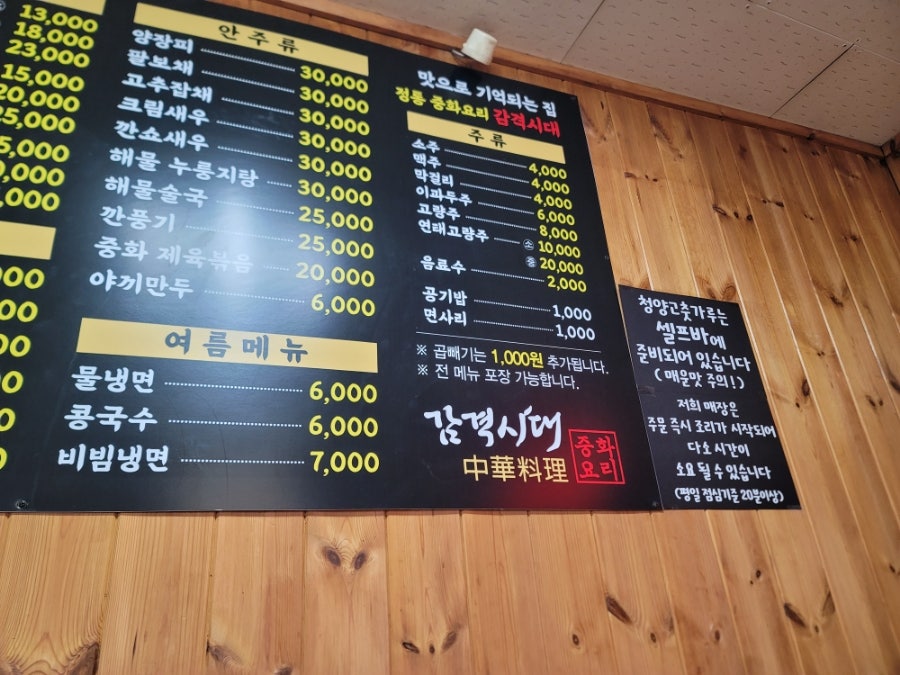 13,000
18,000
23,000
15,000
20,000
안주류
양장피 30,000
팔보채 30,000
고추잡채 30,000
크림새우 30,000
깐쇼새우 30,000
해물 누룽지탕 30,000
해물술국 25,000
깐풍기 25,000
중화 제육볶음 20,000
야끼만두 6,000
여름메뉴
물냉면 6,000
콩국수 6,000
비빔냉면 7,000
맛으로 기억되는 집
정통 중화요리 감격시대
주류
소주 4,000
맥주 4,000
막걸리 4,000
이과두주 6,000
고량주 8,000
연태고량주 소 10,000
중 20,000
음료수 2,000
공기밥 1,000
면사리 1,000
※ 곱빼기는 1,000원 추가됩니다.
※ 전 메뉴 포장 가능합니다.
감격시대
中華料理 중화요리
청양고춧가루는
셀프바에
준비되어 있습니다
(매운맛 주의!)
저희 매장은
주문 즉시 조리가 시작되어
다소 시간이
소요 될 수 있습니다
(평일 점심기준 20분이상)